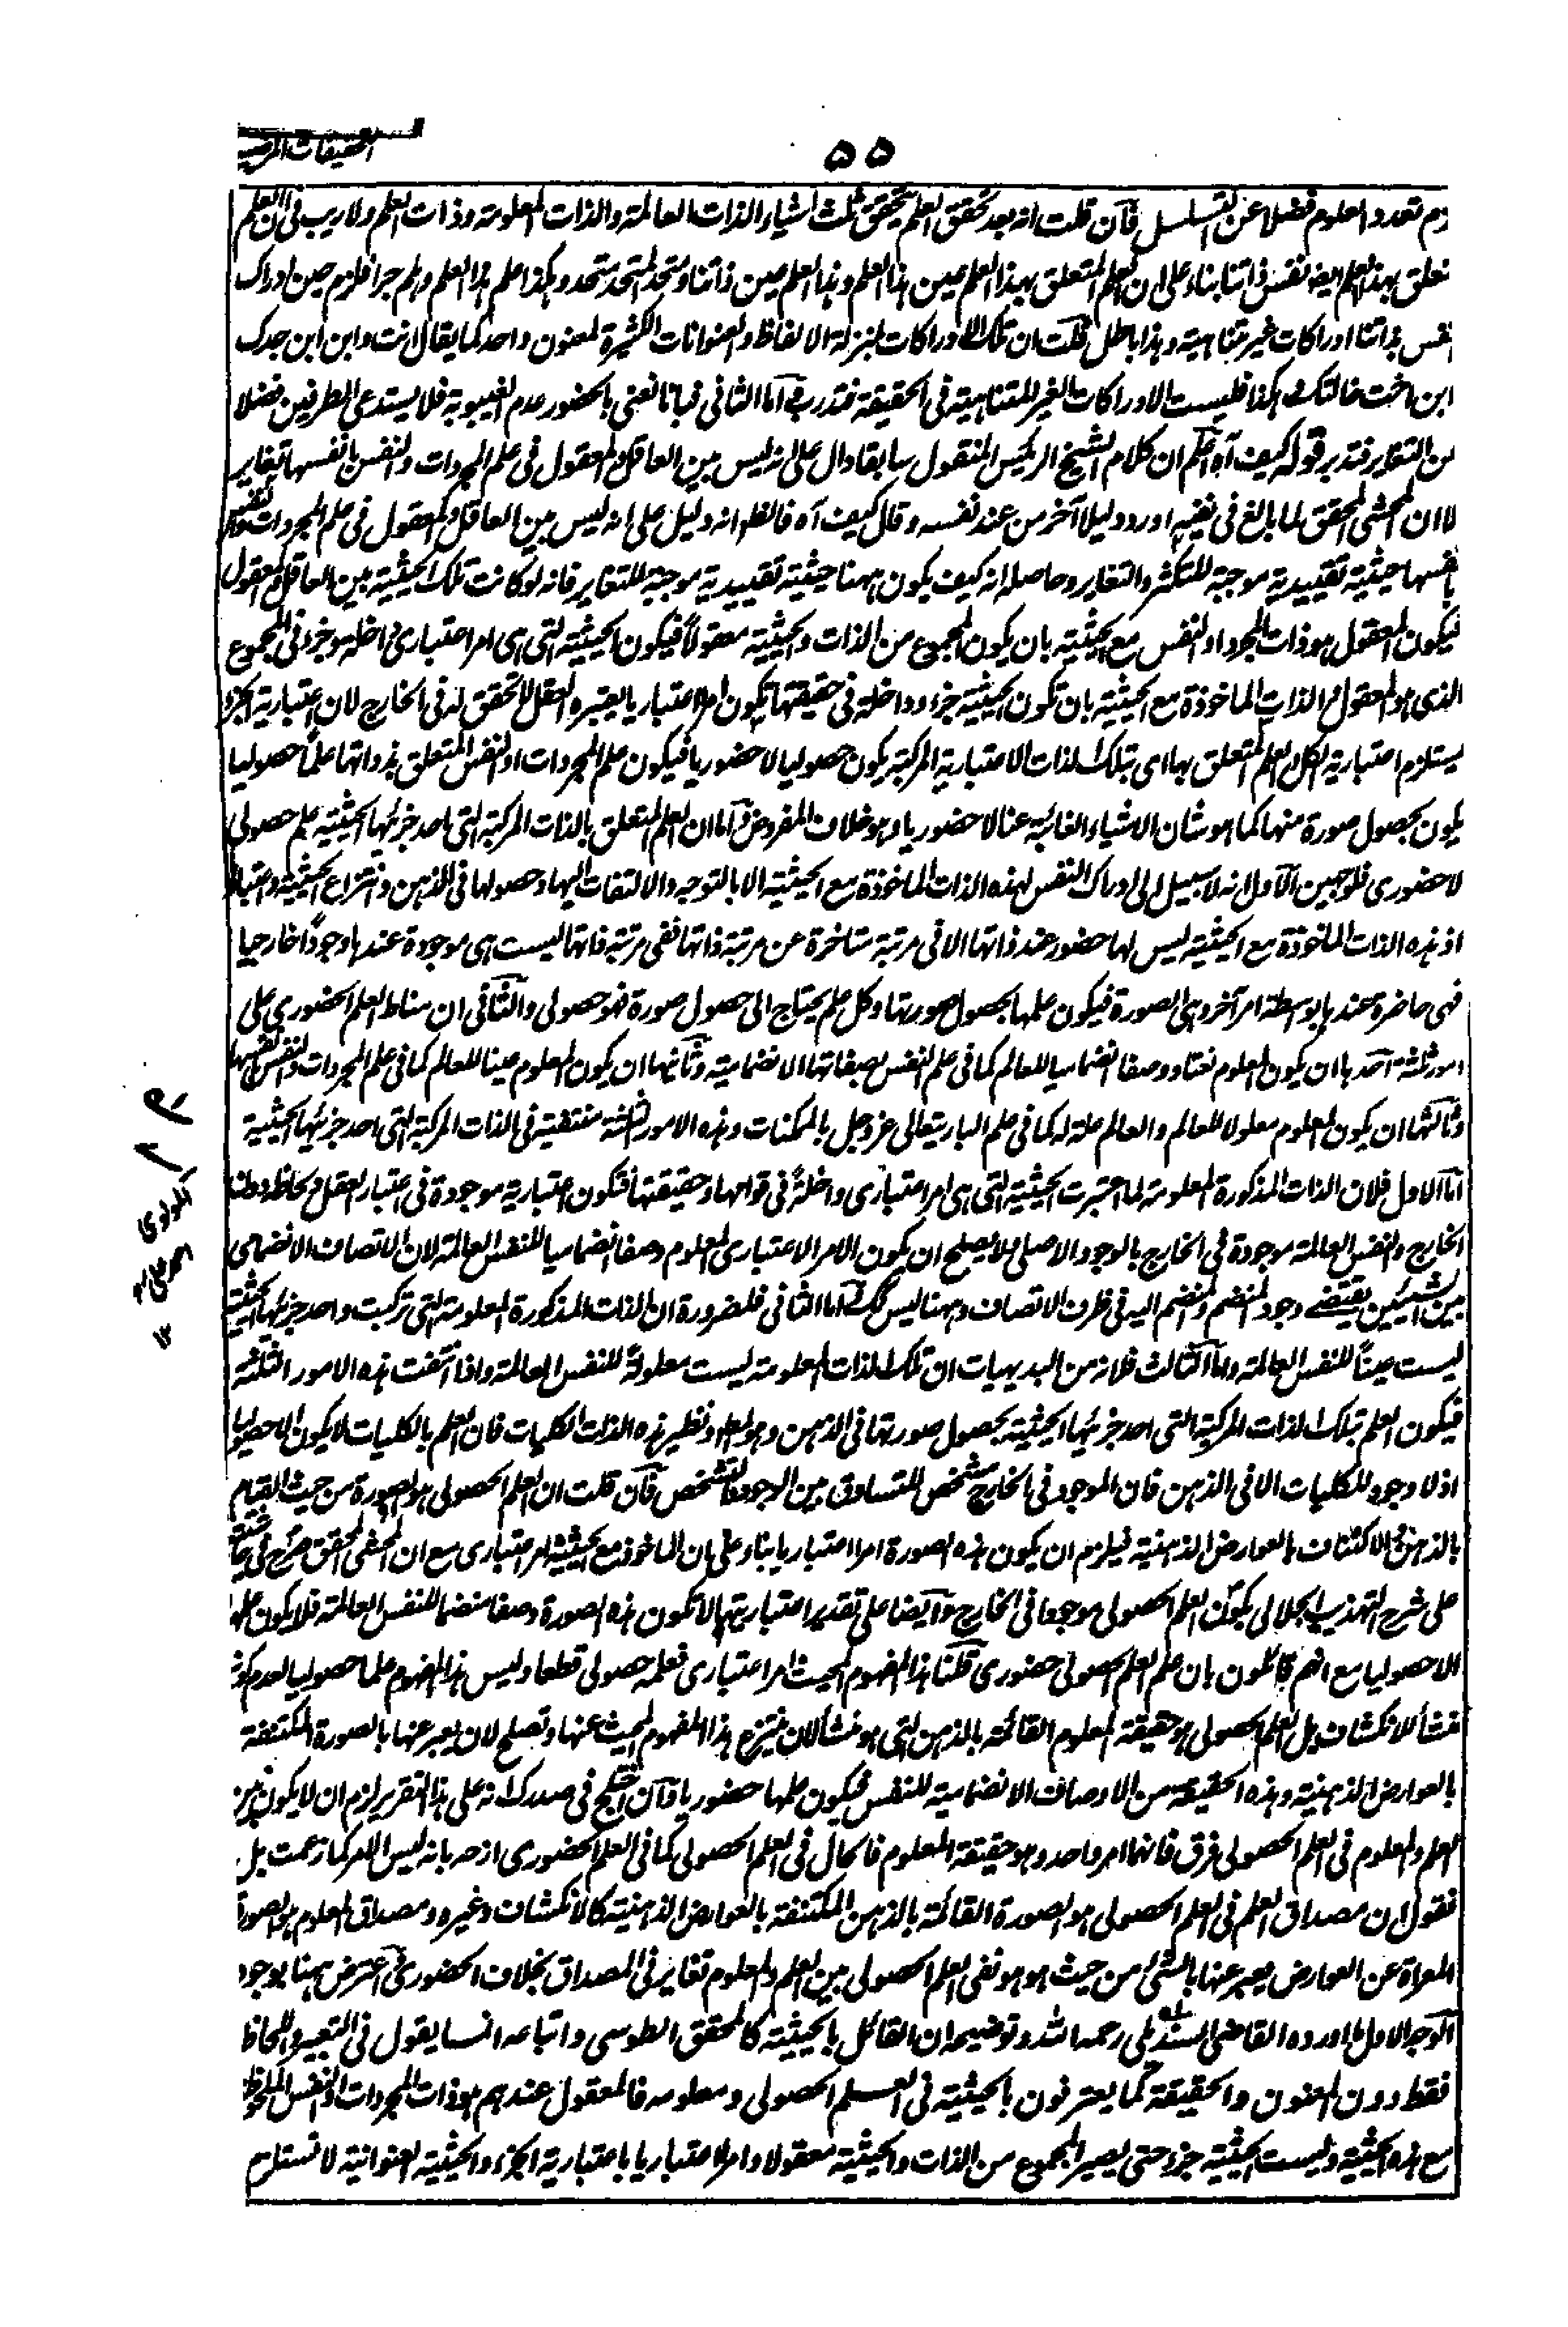 التحقيقات المرضية
۵۵
تعدد العلوم فضلا عن التسلسل فان قلت انه بعد تحقق العلم تحقق ثلث اشياء الذات العالمة والذات المعلومة وذات العلم ولا ريب في ان العلم
تعلق بهذا العلم ايضا نفس ذاتنا بناء على ان العلم المتعلق بهذا العلم عين هذا العلم وهذا العلم عين ذاتنا ومتحد المتحد متحد وهكذا علم هذا العلم وهلم جرا فلزم حين ادراك
انفس ذاتنا ادراكات غير متناهية وهذا باطل قلت ان تلك الادراكات بمنزلة الالفاظ والعنوانات الكثيرة لمعنون واحد كما يقال انت وابن ابن جدك
ابن اخت خالتك وهكذا فليست الادراكات الغير المتناهية في الحقيقة فتدبر واما الثاني فبانا نعني بالحضور عدم الغيبوبة فلا يستدعي الطرفين فضلا
من التغاير فتدبر قوله كيف آه اعلم ان كلام الشيخ الرئيس المنقول سابقا دال على انه ليس بين العاقل والمعقول في علم المجردات والنفس بانفسها تغاير
الا ان المحشي المحقق لما بالغ في نفيه اورد دليلا آخر من عند نفسه وقال كيف آه فالظاهر انه دليل على انه ليس بين العاقل والمعقول في علم المجردات والنفس
بانفسها حيثية تقييدية موجبة للتكثر والتغاير وحاصله انه كيف يكون ههنا حيثية تقييدية موجبة للتغاير فانه لو كانت تلك الحيثية بين العاقل والمعقول
فيكون المعقول هو ذات المجرد او النفس مع الحيثية بان يكون المجموع من الذات والحيثية معقولا فيكون الحيثية التي هي امر اعتباري داخلة وجزء في المجموع
الذي هو المعقول والذات الماخوذة مع الحيثية بان تكون الحيثية جزء وداخلة في حقيقتها يكون امرا اعتباريا يعتبره العقل لا تحقق له في الخارج لان اعتبارية الجزء
يستلزم اعتبارية الكل والعلم المتعلق بها اى بتلك الذات الاعتبارية المركبة يكون حصوليا لا حضوريا فيكون علم المجردات او النفس المتعلق بذواتها علما حصوليا
يكون بحصول صورة منها كما هو شان الاشياء الغائبة عنا لا حضوريا وهو خلاف المفروض واما ان العلم المتعلق بالذات المركبة التي احد جزئيها الحيثية علم حصولي
لا حضوري فلوجهين الاول انه لا سبيل الى ادراك النفس لهذه الذات الماخوذة مع الحيثية الا بالتوجه والالتفات اليها وحصولها في الذهن وانتزاع الحيثية واعتبارها
اذ هذه الذات الماخوذة مع الحيثية ليس لها حضور عند ذاتها الا في مرتبة متاخرة عن مرتبة ذاتها ففي مرتبة ذاتها ليست هي موجودة عندها وجودا خارجيا
فهي حاضرة عندها بواسطة امر آخر وهي الصورة فيكون علمها بحصول صورتها وكل علم يحتاج الى حصول صورة فهو حصولي والثاني ان مناط العلم الحضوري على
امور ثلثة احدها ان يكون المعلوم نعتا ووصفا انضماميا للعالم كما في علم النفس بصفاتها الانضمامية وثانيها ان يكون المعلوم عينا للعالم كما في علم المجردات والنفس بانفسها
وثالثها ان يكون المعلوم معلولا للعالم والعالم علة له كما في علم الباري تعالى عز وجل بالممكنات وهذه الامور الثلثة منتفية في الذات المركبة التي احد جزئيها الحيثية
اما الاول فلان الذات المذكورة المعلومة لما اعتبرت الحيثية التي هي امر اعتباري داخلة في قوامها وحقيقتها فتكون اعتبارية موجودة في اعتبار العقل ولحاظه دون
الخارج والنفس العالمة موجودة في الخارج بالوجود الاصلي فلا يصلح ان يكون الامر الاعتباري المعلوم وصفا انضماميا للنفس العالمة لان الاتصاف الانضمامي
بين الشيئين يقتضي وجود المنضم والمنضم اليه في ظرف الاتصاف وههنا ليس كذلك اما الثاني فلضرورة ان الذات المذكورة المعلومة التي تركبت واحد جزئيها الحيثية
ليست عينا للنفس العالمة واما الثالث فلانه من البديهيات ان تلك الذات المعلومة ليست معلولة للنفس العالمة واذا انتفت هذه الامور الثلثة
فيكون العلم بتلك الذات المركبة التي احد جزئيها الحيثية بحصول صورتها في الذهن وهو المراد ونظير هذه الذات الكليات فان العلم بالكليات لا يكون الا حصوليا
اذ لا وجود للكليات الا في الذهن فان الموجود في الخارج مشخص للتساوق بين الوجود والتشخص فان قلت ان العلم الحصولي هو الصورة من حيث القيام
بالذهن والاكتناف بالعوارض الذهنية فيلزم ان يكون هذه الصورة امرا اعتباريا بناء على ان الماخوذ مع الحيثية امر اعتباري مع ان المحشي المحقق صرح في حاشيته
على شرح التهذيب الجلالي بكون العلم الحصولي موجودا في الخارج وايضا على تقدير اعتباريتها لا تكون هذه الصورة وصفا منضما للنفس العالمة فلا يكون علمها
الا حصوليا مع انهم قائلون بان علم العلم الحصولي حضوري قلنا هذا المفهوم المحيث امر اعتباري فعلمه حصولي قطعا وليس هذا المفهوم علما حصوليا لعدم كونه
منشأ للانكشاف بل العلم الحصولي هو حقيقة المعلوم القائمة بالذهن التي هو منشأ لان ينتزع هذا المفهوم المحيث عنها وتصلح لان يعبر عنها بالصورة المكتنفة
بالعوارض الذهنية وهذه الحقيقة من الاوصاف الانضمامية للنفس فيكون علمها حضوريا فان اختلج في صدرك انه على هذا التقرير لزم ان لا يكون بين
العلم والمعلوم في العلم الحصولي فرق فانهما امر واحد وهو حقيقة المعلوم فالحال في العلم الحصولي كما في العلم الحضوري ازحه بانه ليس الامر كما زعمت بل
نقول ان مصداق العلم في العلم الحصولي هو الصورة القائمة بالذهن المكتنفة بالعوارض الذهنية كالانكشاف وغيره ومصداق المعلوم هو الصورة
المعراة عن العوارض يعبر عنها بالشئ من حيث هو هو ففي العلم الحصولي بين العلم والمعلوم تغاير في المصداق بخلاف الحضوري ثم اعترض ههنا بوجوه
الوجه الاول ما اورده القاضي السنديلي رحمه الله وتوضيحه ان القائل بالحيثية كالمحقق الطوسي واتباعه انما يقول في التعبير واللحاظ
فقط دون المعنون والحقيقة كما يعترفون بالحيثية في العلم الحصولي ومعلومه فالمعقول عندهم هو ذات المجردات او النفس الملحوظ
مع هذه الحيثية وليست الحيثية جزء حتى يصير المجموع من الذات والحيثية معقولا وامرا اعتباريا باعتبارية الجزء والحيثية العنوانية لا تستلزم
المولوي
احمد علي
۱۲